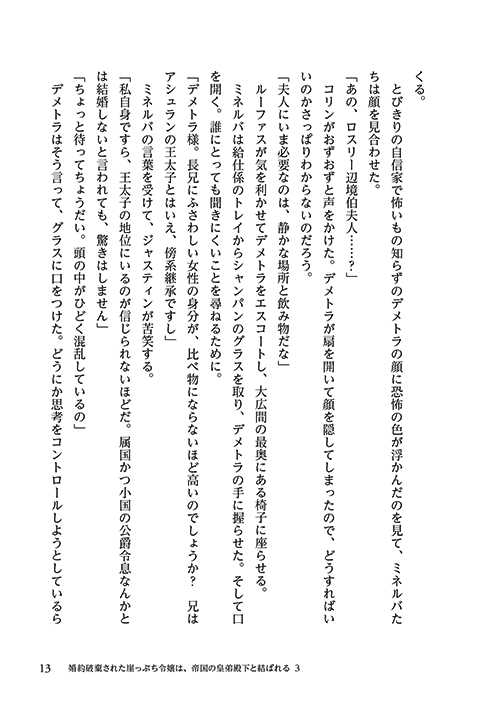 くる。
　とびきりの自信家で怖いもの知らずのデメトラの顔に恐怖の色が浮かんだのを見て、ミネルバた
ちは顔を見合わせた。
「あの、ロスリー辺境伯夫人……？」
　コリンがおずおずと声をかけた。デメトラが扇を開いて顔を隠してしまったので、どうすればい
いのかさっぱりわからないのだろう。
「夫人にいま必要なのは、静かな場所と飲み物だな」
　ルーファスが気を利かせてデメトラをエスコートし、大広間の最奥にある椅子に座らせる。
　ミネルバは給仕係のトレイからシャンパンのグラスを取り、デメトラの手に握らせた。そして口
を開く。誰にとっても聞きにくいことを尋ねるために。
「デメトラ様。長兄にふさわしい女性の身分が、比べ物にならないほど高いのでしょうか？　兄は
アシュランの王太子とはいえ、傍系継承ですし」
　ミネルバの言葉を受けて、ジャスティンが苦笑する。
「私自身ですら、王太子の地位にいるのが信じられないほどだ。属国かつ小国の公爵令息なんかと
は結婚しないと言われても、驚きはしません」
「ちょっと待ってちょうだい。頭の中がひどく混乱しているの」
　デメトラはそう言って、グラスに口をつけた。どうにか思考をコントロールしようとしているら
13　婚約破棄された崖っぷち令嬢は、帝国の皇弟殿下と結ばれる 3